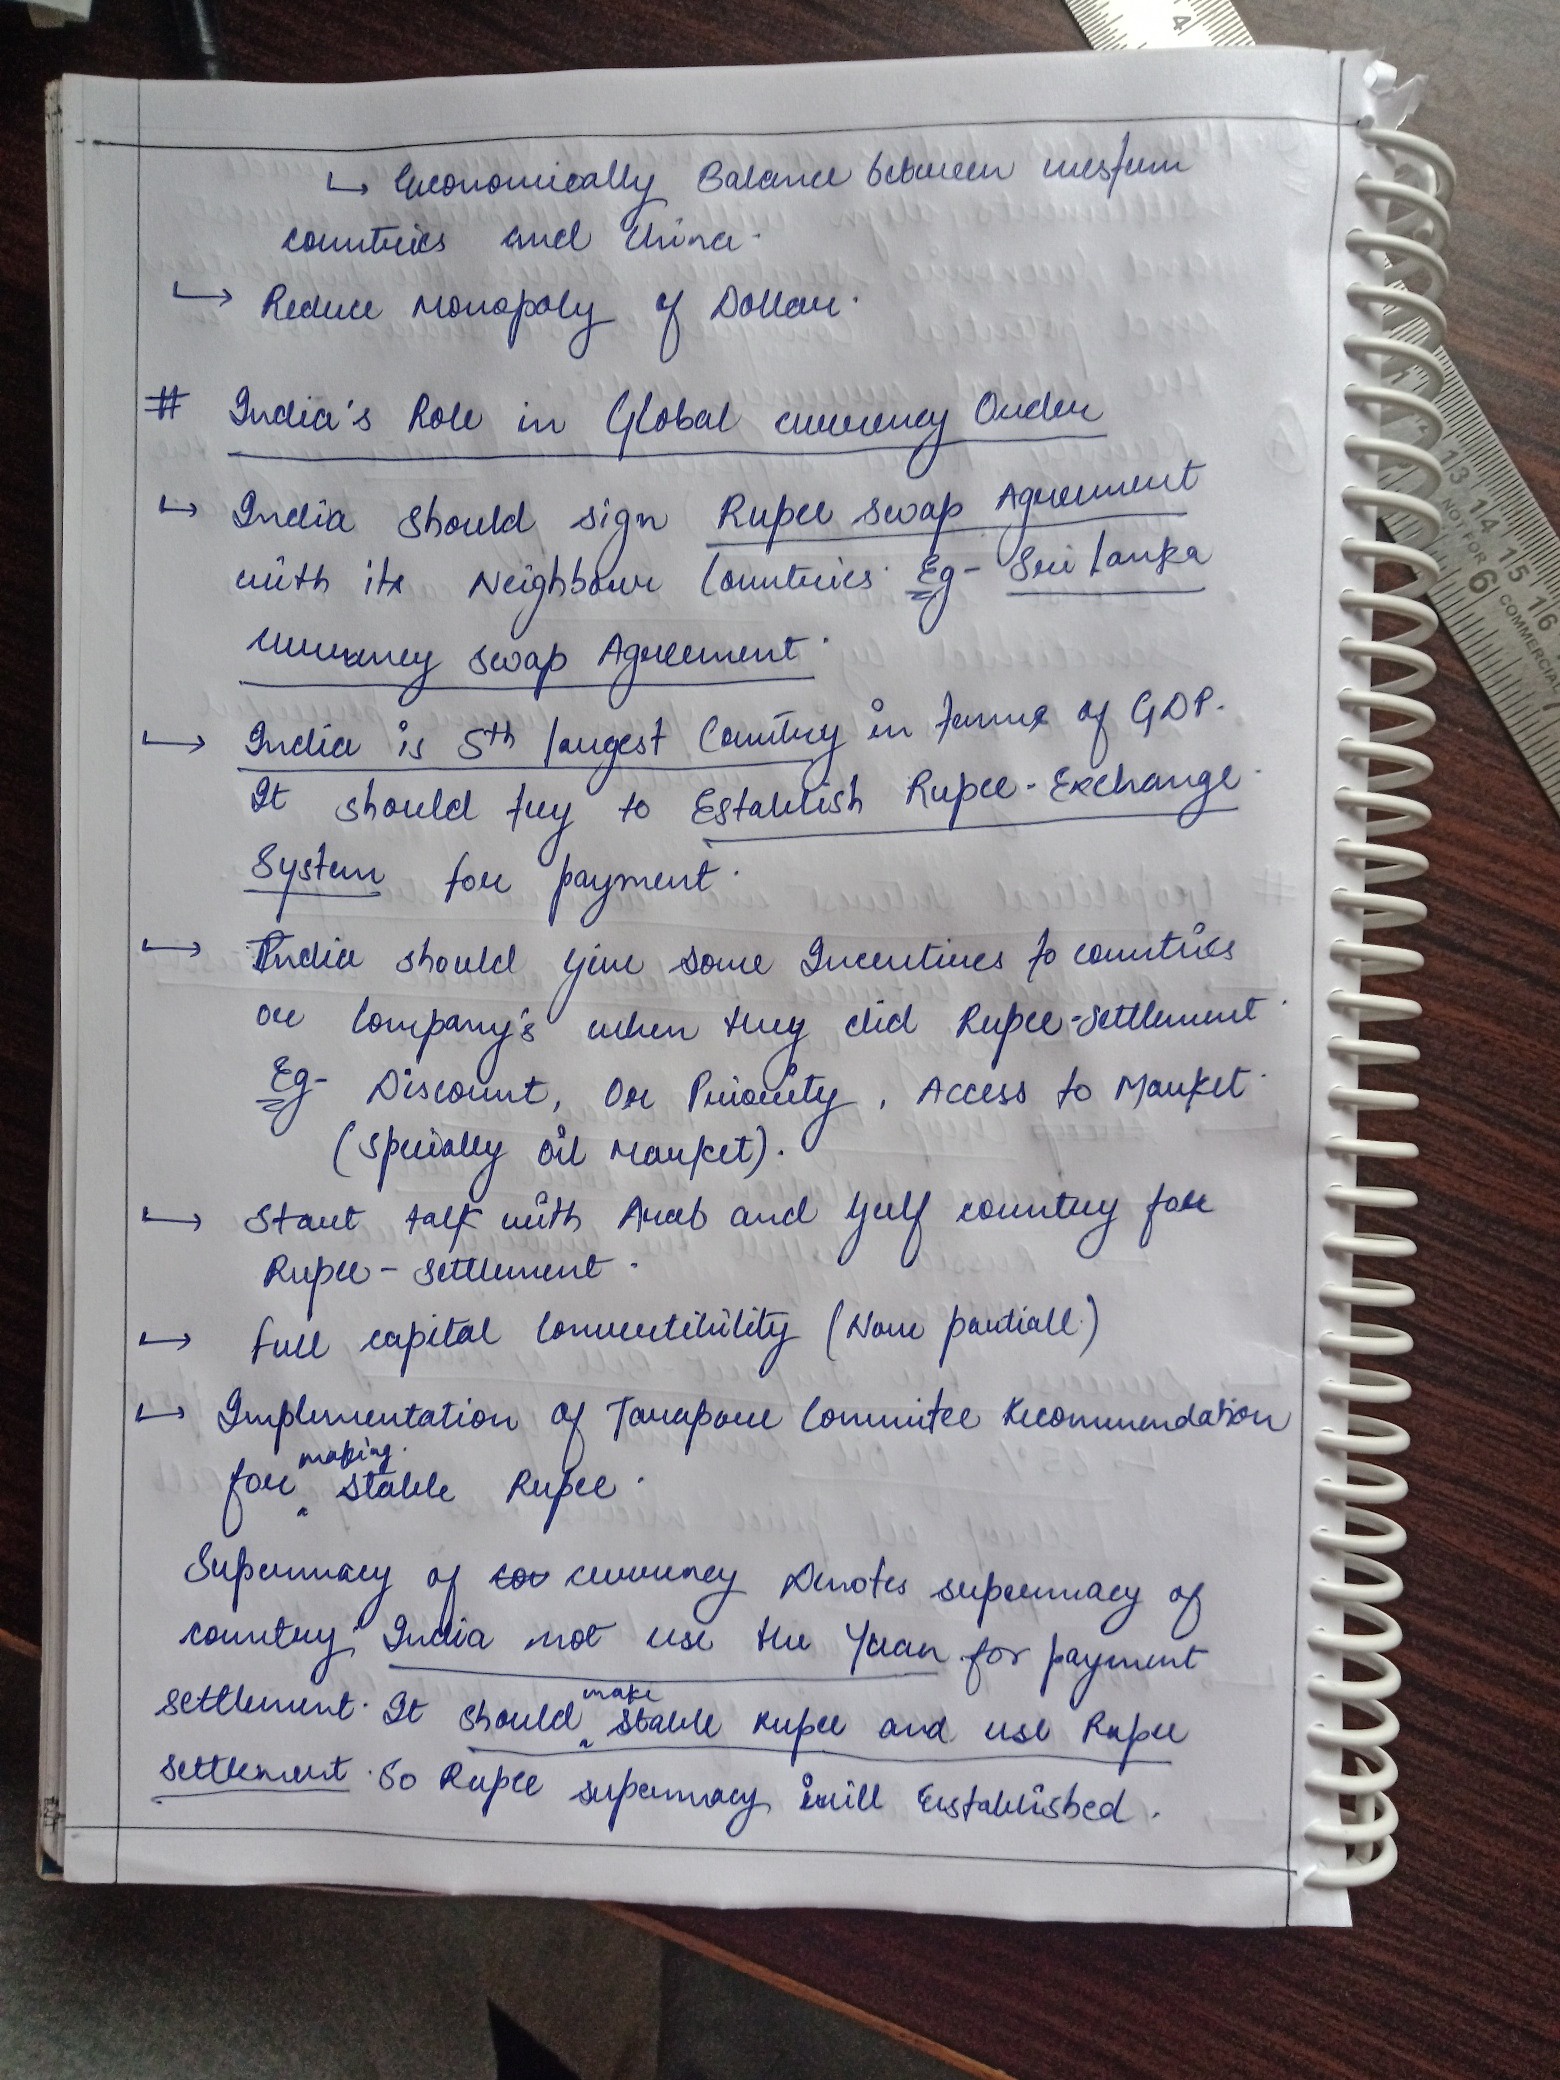 ↳ Economically Balance between western
countries and China.
↳ Reduce Monopoly of Dollar.
# India's Role in Global currency Order
↳ India should sign Rupee swap Agreement
with its Neighbour Countries. Eg- Sri Lanka
currency swap Agreement.
↳ India is 5th largest Country in terms of GDP.
It should try to Establish Rupee-Exchange
System for payment.
↳ India should give some Incentives to countries
or Company's when they did Rupee-settlement.
Eg- Discount, Or Priority, Access to Market.
(specially oil Market).
↳ Start talk with Arab and Gulf country for
Rupee-settlement.
↳ Full capital Convertibility (Now partiall)
↳ Implementation of Tarapore Commitee Recommendation
for making stable Rupee.
Supermacy of currency Denotes supermacy of
country. India not use the Yuan for payment
settlement. It should make stable rupee and use Rupee
settlement. So Rupee supermacy will Established.
4
13 14 15 16
NOT FOR
6
COMMERCIAL